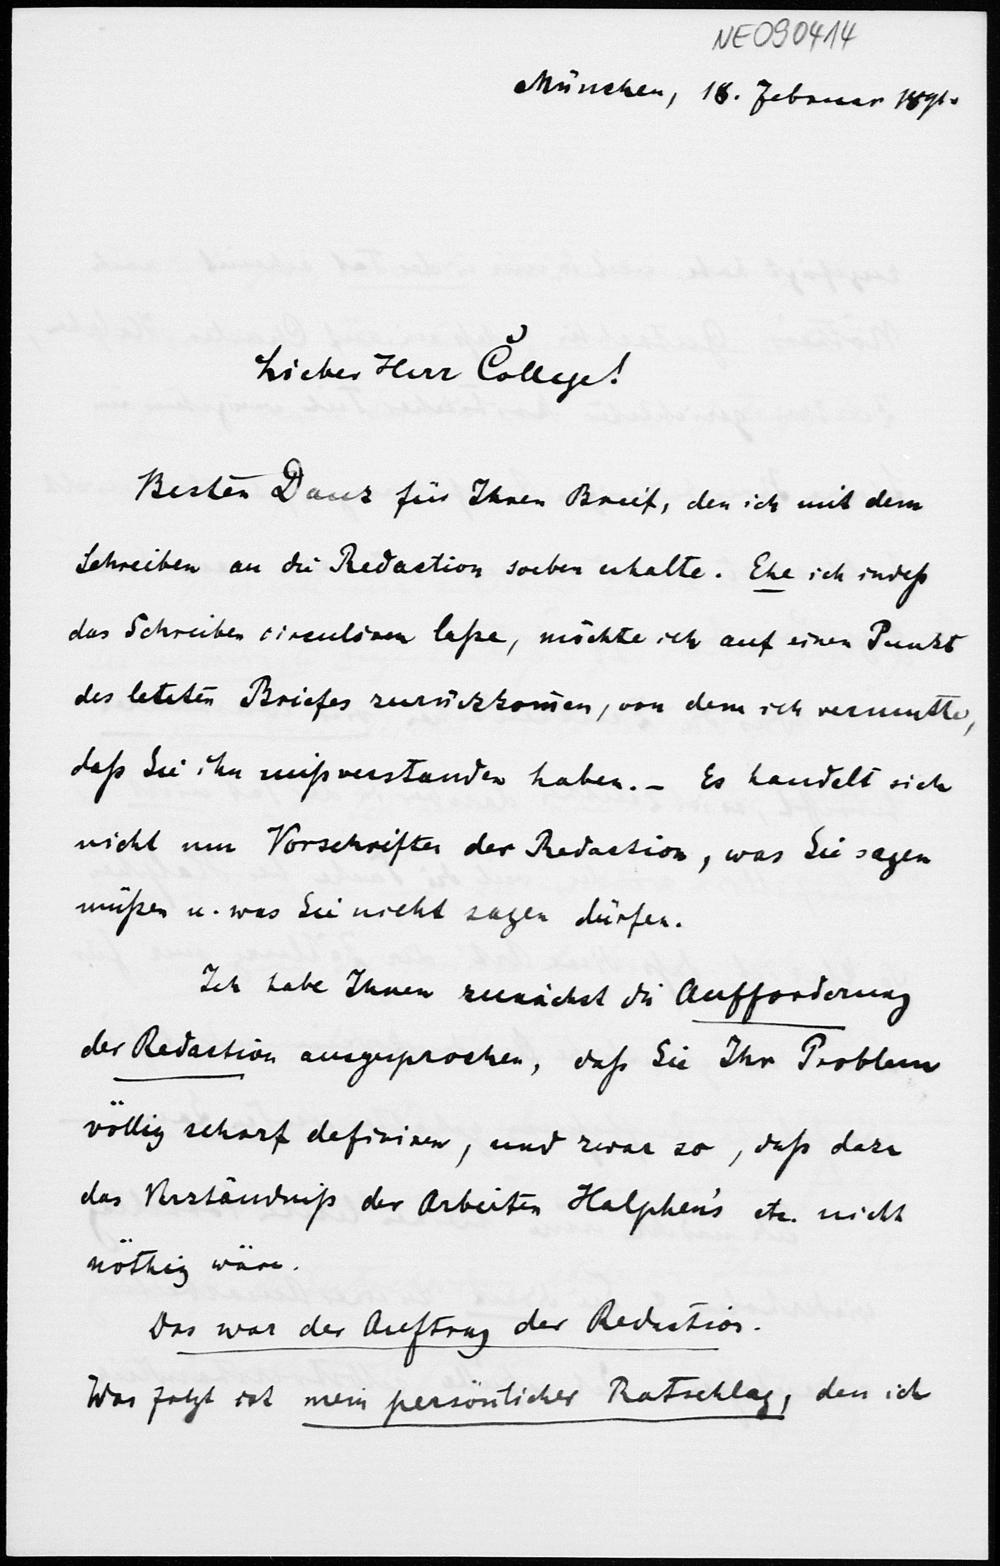 NE090414
München, 18. Februar 1891.
Lieber Herr College!
Besten Dank für Ihren Brief, den ich mit dem
Schreiben an die Redaction soeben erhalte. Ehe ich indeß
das Schreiben circuliren laße, möchte ich auf einen Punkt
des letzten Briefes zurückkom̄en, von dem ich vermutte,
daß Sie ihn mißverstanden haben. – Es handelt sich
nicht um Vorschriften der Redaction, was Sie sagen
müßen u. was Sie nicht sagen dürfen.
Ich habe Ihnen zunächst die Aufforderung
der Redaction ausgesprochen, daß Sie Ihr Problem
völlig scharf definiren, und zwar so, daß dazu
das Verständniß der Arbeiten Halphen's etc. nicht
nöthig wäre.
Das war der Auftrag der Redaction.
Was folgt ist mein persönlicher Ratschlag, den ich